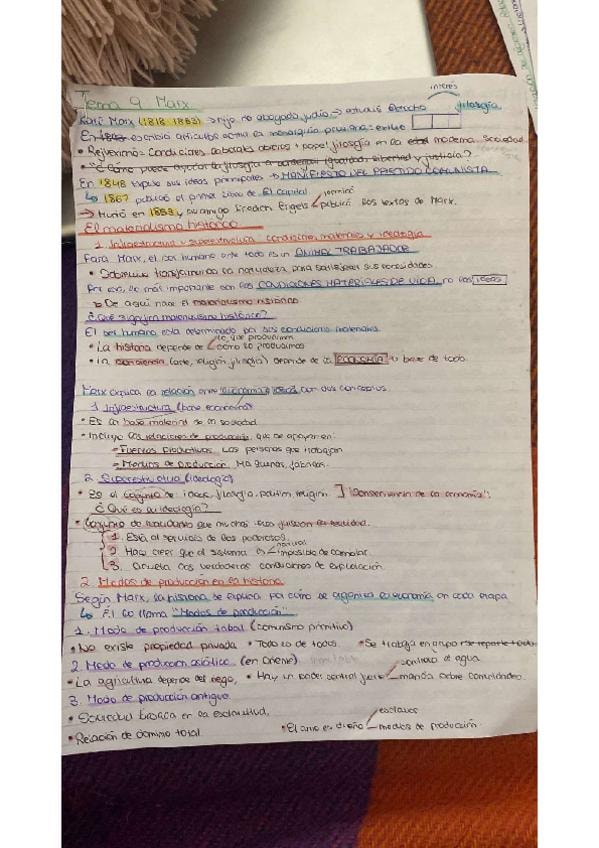 Tema 9 Marx
interés
Karl Marx (1818-1883) → hijo de abogado judío → estudia Derecho filosofía.
En 1842 escribía artículos contra la monarquía prusiana = exilio
• Reflexionó = condiciones laborales obreros + papel filosofía en la edad moderna. sociedad
• ¿Cómo puede ayudar la filosofía a conseguir igualdad, libertad y justicia?
En 1848 expuso sus ideas principales → MANIFIESTO DEL PARTIDO COMUNISTA
↳ 1867 publicó el primer libro de El Capital
→ Murió en 1883 y su amigo Friedrich Engels terminó publicó los textos de Marx.
El materialismo histórico
1. Infraestructura y superestructura: condiciones materiales e ideología
Para Marx, el ser humano ante todo es un ANIMAL TRABAJADOR
• Sobrevive transformando la naturaleza para satisfacer sus necesidades
Por eso, lo más importante son las CONDICIONES MATERIALES DE VIDA, no las ideas
↳ De aquí nace el materialismo histórico
¿Qué significa materialismo histórico?
El ser humano está determinado por sus condiciones materiales.
• La historia depende de lo que producimos cómo lo producimos
• La conciencia (arte, religión, filosofía) depende de la ECONOMÍA → base de todo.
Marx explica la relación entre economía e ideas con dos conceptos.
1. Infraestructura (base económica)
• Es la base material de la sociedad
• Incluye las relaciones de producción, que se apoyan en:
→ Fuerzas Productivas: Las personas que trabajan
→ Medios de producción: Máquinas, fábricas.
2. Superestructura (ideología)
• Es el conjunto de: ideas, filosofía, política, religión. ] consecuencia de la economía.
¿Qué es la ideología?
• Conjunto de ideas que muchas veces la realidad.
1. Está al servicio de los poderosos.
2. Hace creer que el sistema es natural imposible de cambiar.
3. Oculta las verdaderas condiciones de explotación.
2. Modos de producción en la historia
Según Marx, la historia se explica por cómo se organiza la economía en cada etapa
↳ Él lo llama "Modos de producción"
1. Modo de producción tribal (comunismo primitivo)
• No existe propiedad privada • Todo es de todos. • Se trabaja en grupo + se reparte todo
2. Modo de producción asiático (en Oriente)
• La agricultura depende del riego, • Hay un poder central fuerte controla el agua manda sobre comunidades.
3. Modo de producción antiguo
• Sociedad basada en la esclavitud.
• Relación de dominio total. • El amo es dueño esclavos medios de producción.